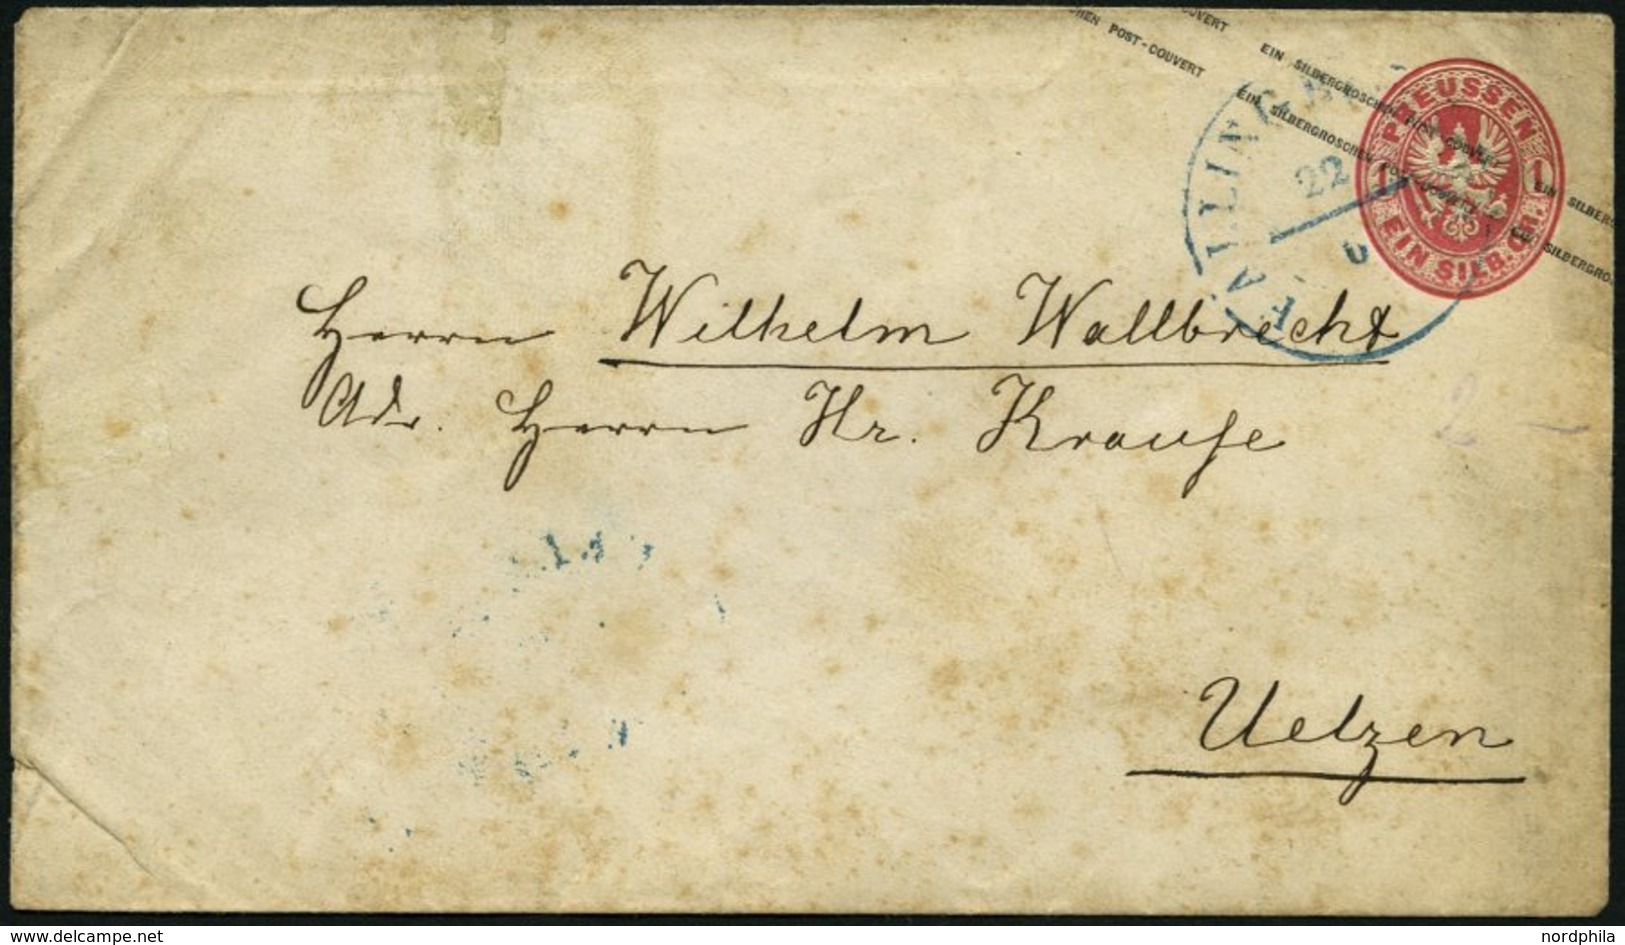 HEN POST-COUVERT
OUVERT
EIN SILBERGROSCHEN POST-COUVERT
EIN SILBERGROSCHEN POST-COUVERT
EIN SILBERG
EIN SILBERGRO
PREUSSEN
1 1
EIN SILB. GR.
22
Herrn Wilhelm Wallbrecht
Adr. Herrn Hr. Krause
Uelzen
www.delcampe.net
nordphila